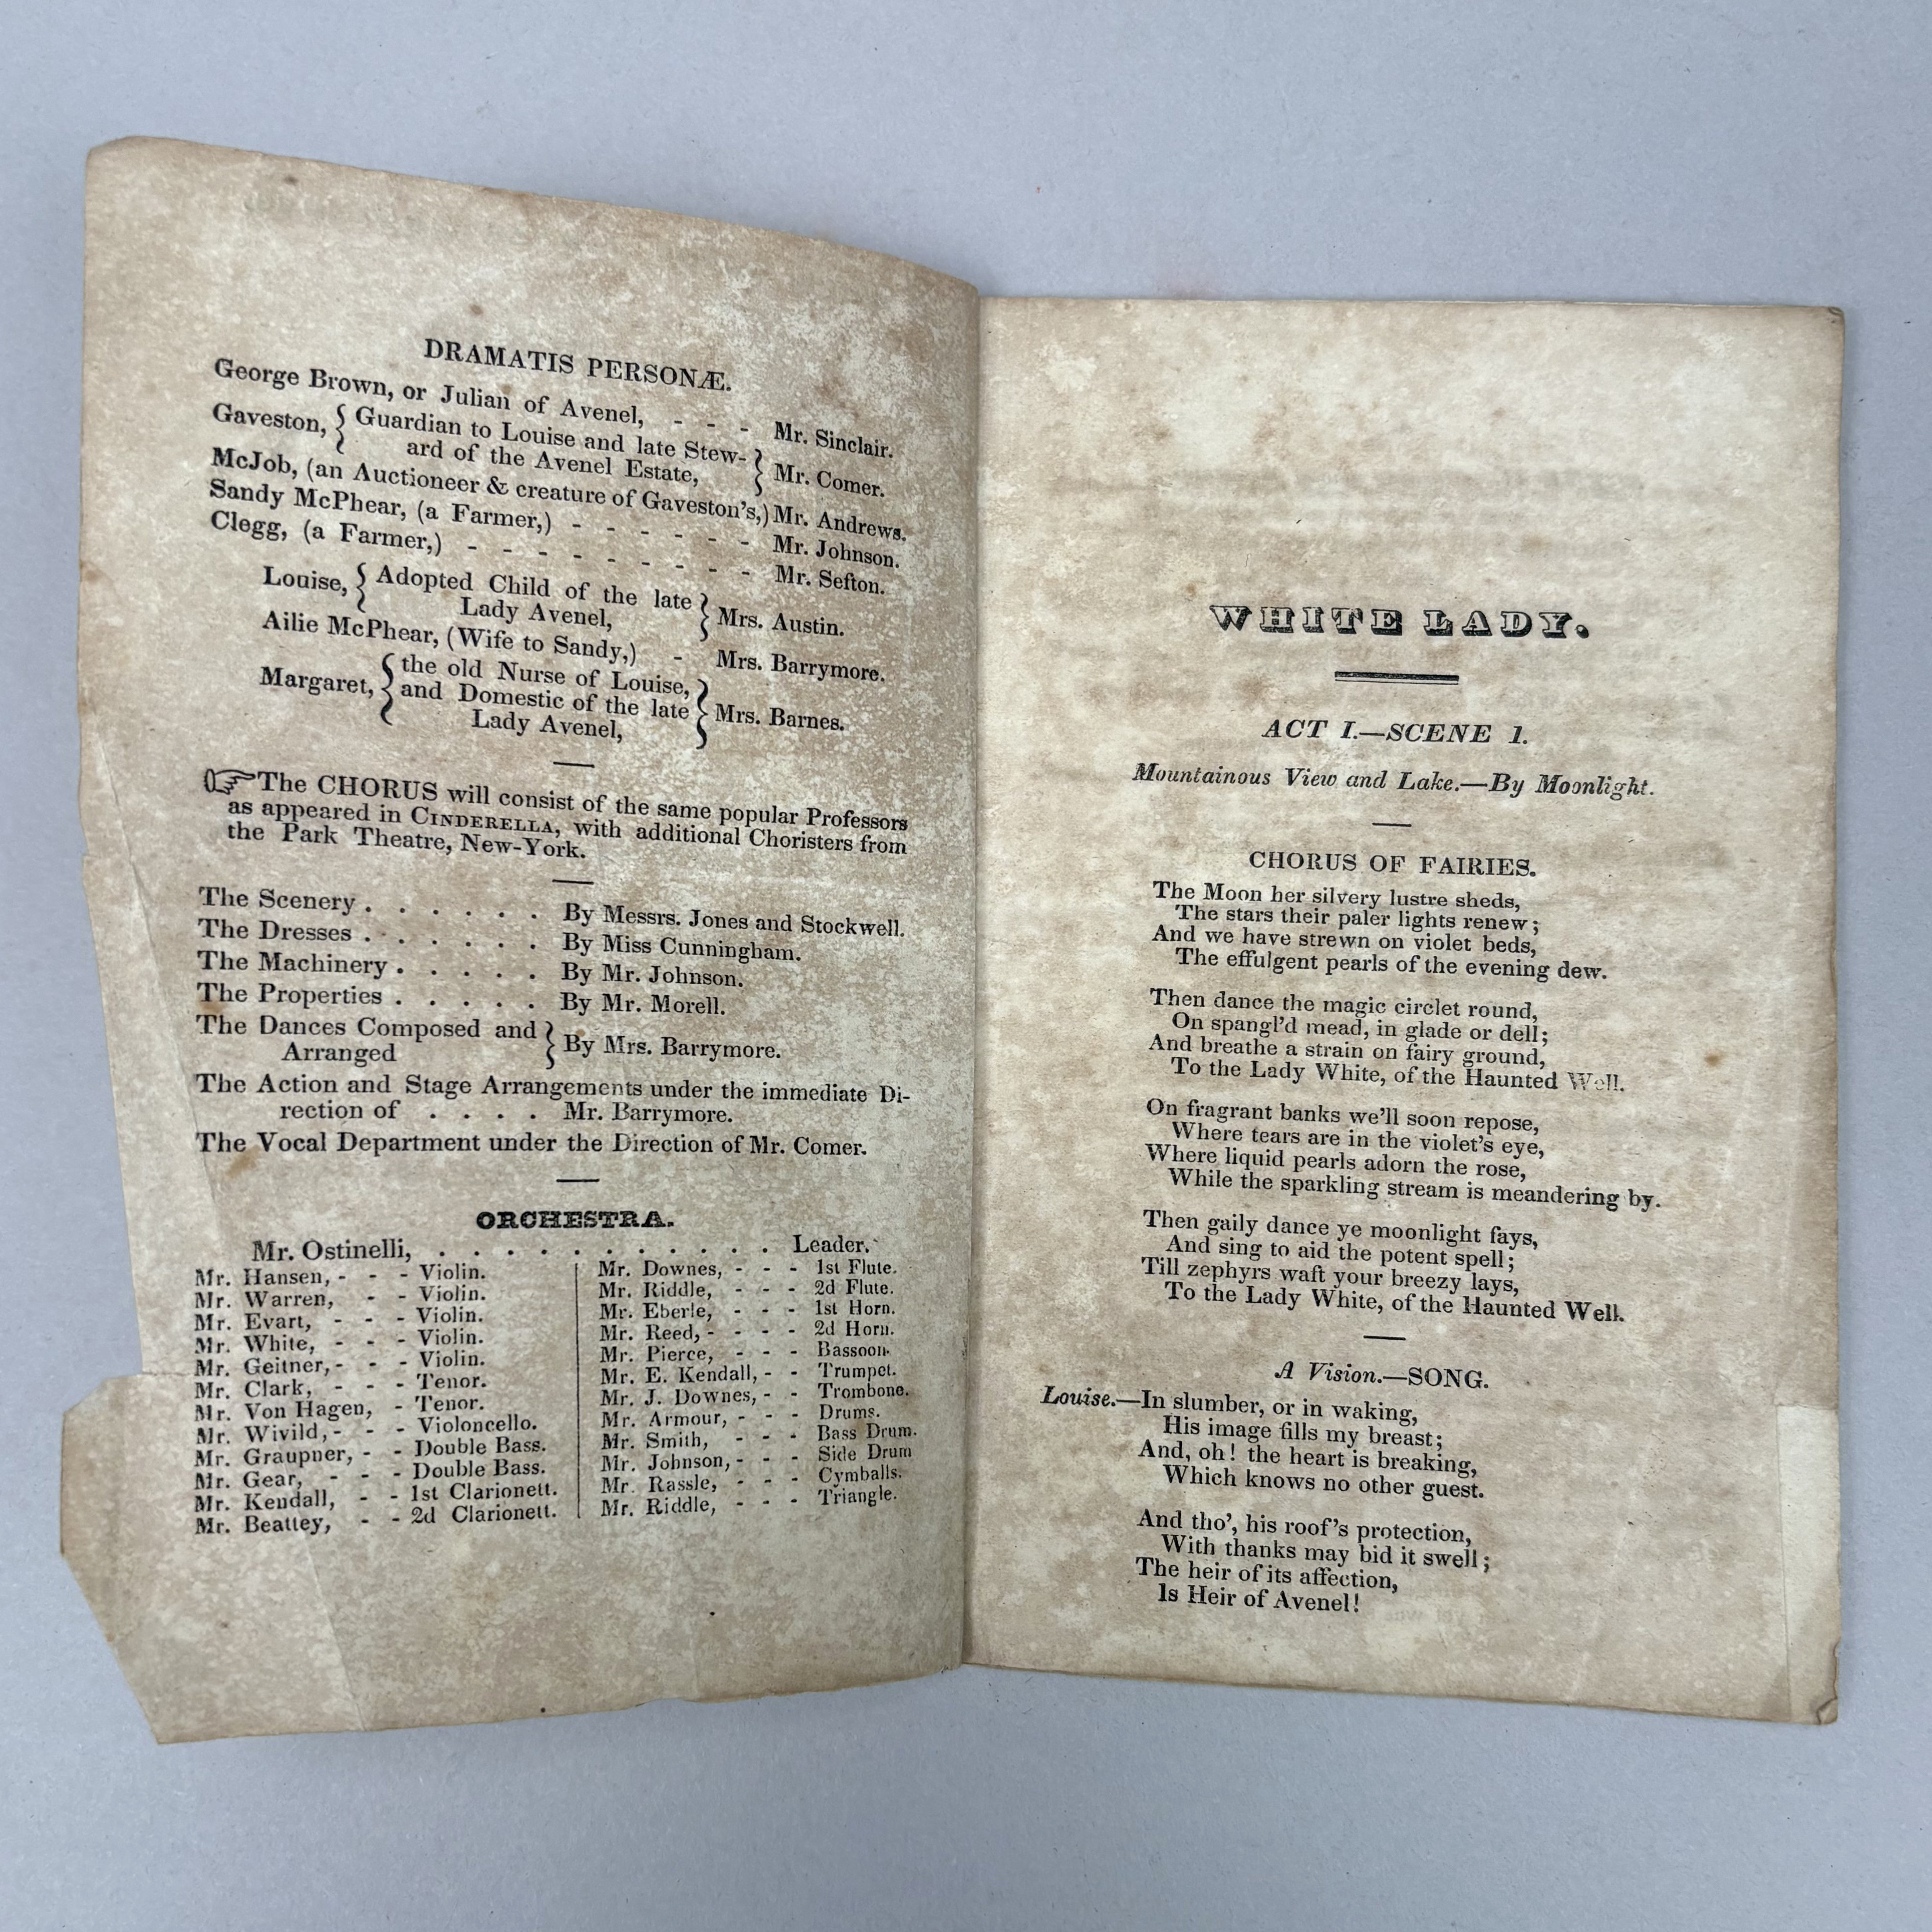 DRAMATIS PERSONÆ.
George Brown, or Julian of Avenel, - - - Mr. Sinclair.
Gaveston, { Guardian to Louise and late Stew-
ard of the Avenel Estate, } Mr. Comer.
McJob, (an Auctioneer & creature of Gaveston's,) Mr. Andrews.
Sandy McPhear, (a Farmer,) - - - - - - Mr. Johnson.
Clegg, (a Farmer,) - - - - - - - - Mr. Sefton.
Louise, { Adopted Child of the late
Lady Avenel, } Mrs. Austin.
Ailie McPhear, (Wife to Sandy,) - Mrs. Barrymore.
Margaret, { the old Nurse of Louise,
and Domestic of the late
Lady Avenel, } Mrs. Barnes.
☞The CHORUS will consist of the same popular Professors
as appeared in CINDERELLA, with additional Choristers from
the Park Theatre, New-York.
The Scenery . . . . . . By Messrs. Jones and Stockwell.
The Dresses . . . . . . By Miss Cunningham.
The Machinery . . . . . By Mr. Johnson.
The Properties . . . . . By Mr. Morell.
The Dances Composed and
Arranged } By Mrs. Barrymore.
The Action and Stage Arrangements under the immediate Di-
rection of . . . . Mr. Barrymore.
The Vocal Department under the Direction of Mr. Comer.
ORCHESTRA.
Mr. Ostinelli, . . . . . . . . . . . Leader.
Mr. Hansen, - - - Violin.
Mr. Warren, - - Violin.
Mr. Evart, - - - Violin.
Mr. White, - - - Violin.
Mr. Geitner, - - - Violin.
Mr. Clark, - - - Tenor.
Mr. Von Hagen, - Tenor.
Mr. Wivild, - - - Violoncello.
Mr. Graupner, - - Double Bass.
Mr. Gear, - - - Double Bass.
Mr. Kendall, - - 1st Clarionett.
Mr. Beattey, - - 2d Clarionett.
Mr. Downes, - - - 1st Flute.
Mr. Riddle, - - - 2d Flute.
Mr. Eberle, - - - 1st Horn.
Mr. Reed, - - - - 2d Horn.
Mr. Pierce, - - - Bassoon.
Mr. E. Kendall, - - Trumpet.
Mr. J. Downes, - - Trombone.
Mr. Armour, - - - Drums.
Mr. Smith, - - - Bass Drum.
Mr. Johnson, - - - Side Drum
Mr. Rassle, - - - Cymballs.
Mr. Riddle, - - - Triangle.
WHITE LADY.
ACT I.—SCENE 1.
Mountainous View and Lake.—By Moonlight.
CHORUS OF FAIRIES.
The Moon her silvery lustre sheds,
The stars their paler lights renew;
And we have strewn on violet beds,
The effulgent pearls of the evening dew.
Then dance the magic circlet round,
On spangl'd mead, in glade or dell;
And breathe a strain on fairy ground,
To the Lady White, of the Haunted Well.
On fragrant banks we'll soon repose,
Where tears are in the violet's eye,
Where liquid pearls adorn the rose,
While the sparkling stream is meandering by.
Then gaily dance ye moonlight fays,
And sing to aid the potent spell;
Till zephyrs waft your breezy lays,
To the Lady White, of the Haunted Well.
A Vision.—SONG.
Louise.—In slumber, or in waking,
His image fills my breast;
And, oh! the heart is breaking,
Which knows no other guest.
And tho', his roof's protection,
With thanks may bid it swell;
The heir of its affection,
Is Heir of Avenel!